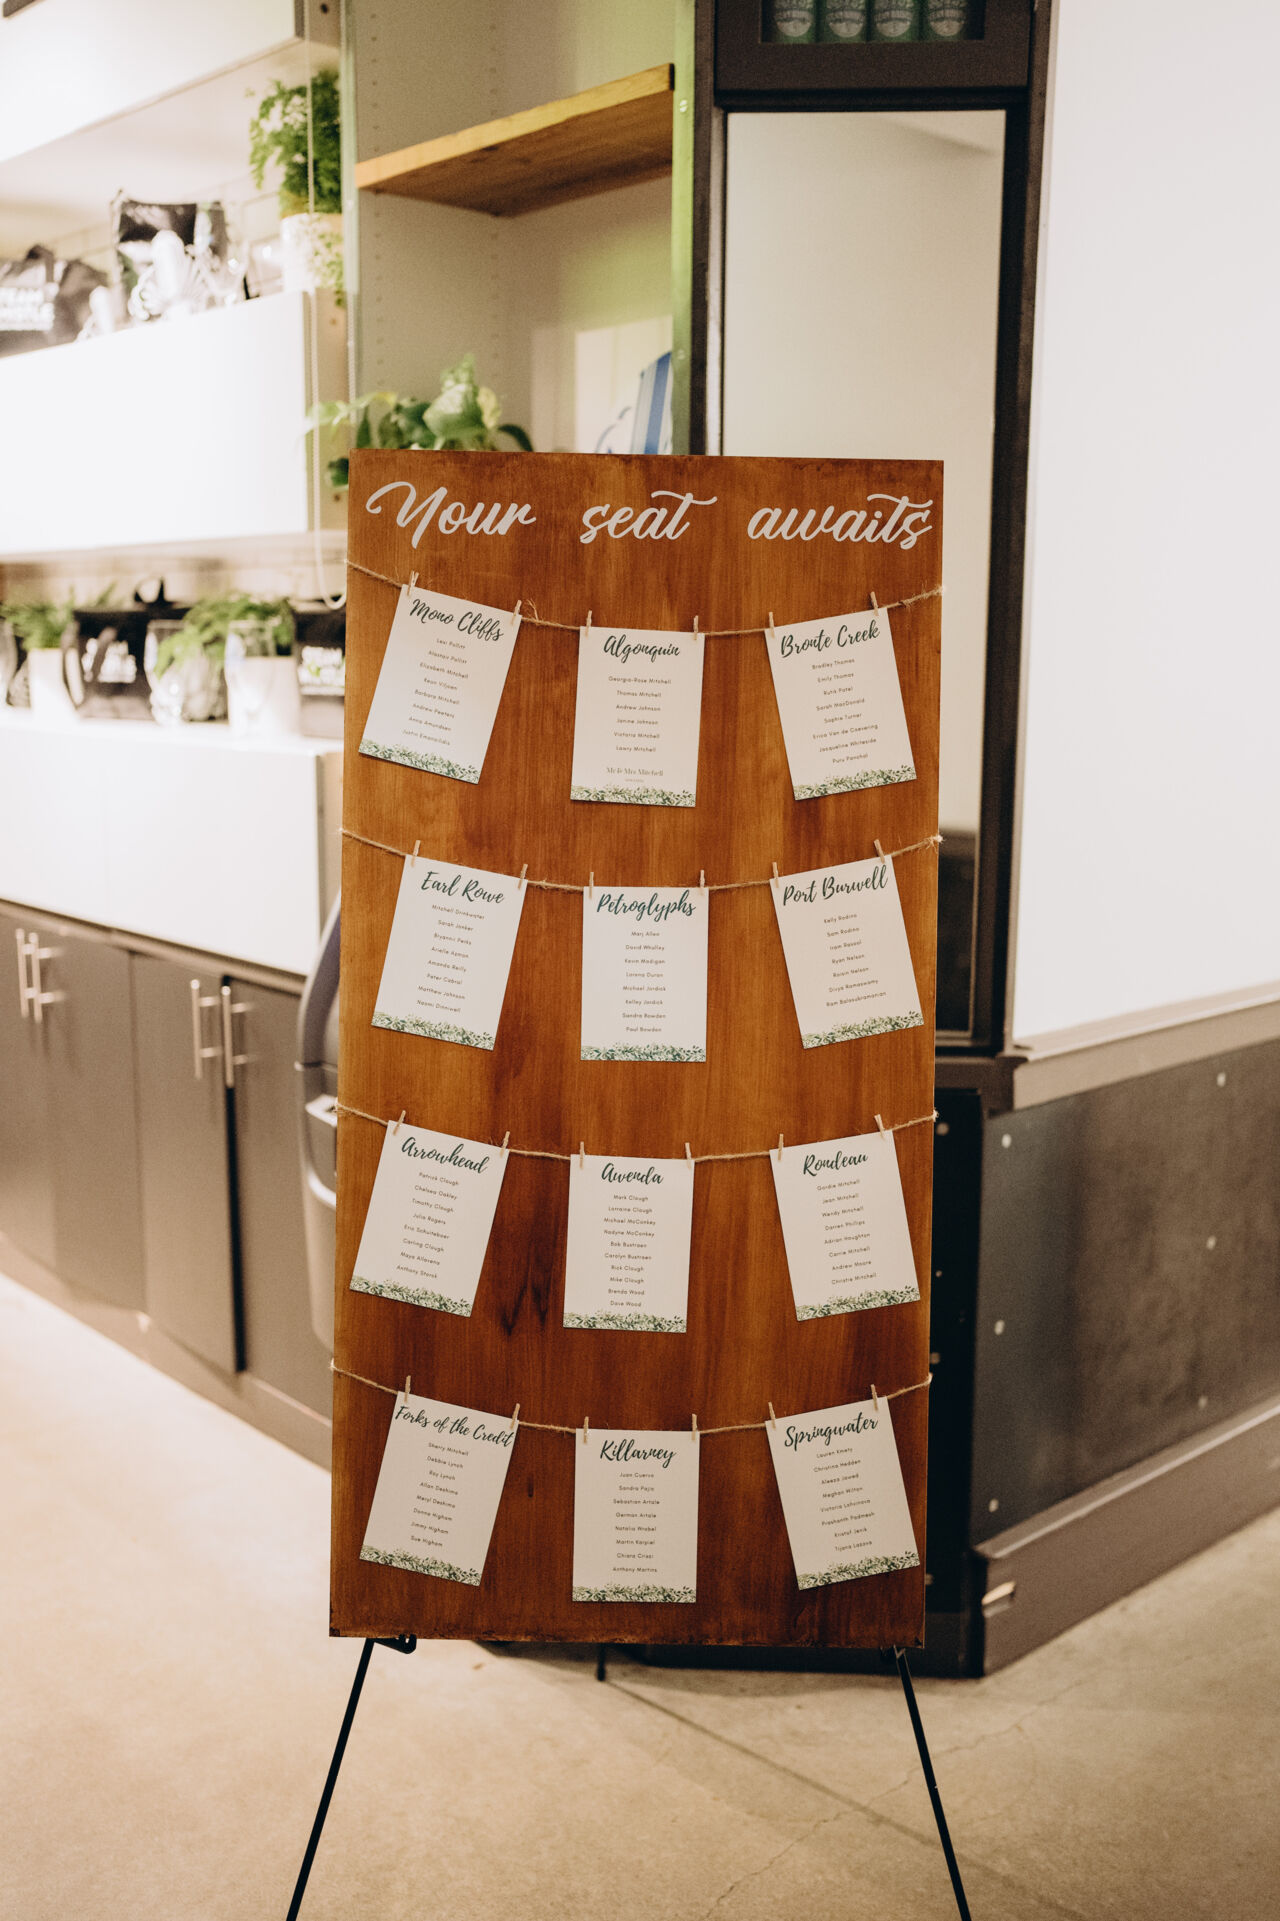 Your seat awaits
Mono Cliffs
Lexi Pollitt
Alastair Pollitt
Elizabeth Mitchell
Kean Viljoen
Barbara Mitchell
Andrew Peeters
Anna Amundsen
Justin Emanoilidis
Algonquin
Georgia-Rose Mitchell
Thomas Mitchell
Andrew Johnson
Janine Johnson
Victoria Mitchell
Lawry Mitchell
Mr & Mrs Mitchell
Bronte Creek
Bradley Thomas
Emily Thomas
Runa Patel
Sarah MacDonald
Sophie Turner
Erica Van de Coevering
Jacqueline Whiteside
Purv Panchal
Earl Rowe
Mitchell Drinkwater
Sarah Jonker
Bryanni Perks
Arielle Azman
Amanda Reilly
Peter Cabral
Matthew Johnson
Naomi Dinniwell
Petroglyphs
Marj Allen
David Whalley
Kevin Madigan
Lorena Duran
Michael Jordick
Kelley Jordick
Sandra Bowden
Paul Bowden
Port Burwell
Kelly Rodino
Sam Rodino
Iram Rasool
Ryan Nelson
Raisin Nelson
Divya Ramaswamy
Ram Balasubramanian
Arrowhead
Patrick Clough
Chelsea Oakley
Timothy Clough
Julia Rogers
Eric Schuiteboer
Carling Clough
Maya
Anthony Storok
Awenda
Mark Clough
Lorraine Clough
Michael McConkey
Nadyne McConkey
Bob Bustraen
Carolyn Bustraen
Rick Clough
Mike Clough
Brenda Wood
Dave Wood
Rondeau
Gordie Mitchell
Jean Mitchell
Wendy Mitchell
Darren Phillips
Adrian Houghton
Carrie Mitchell
Andrew Moore
Christie Mitchell
Forks of the Credit
Sherry Mitchell
Debbie Lynch
Ray Lynch
Allan Deshima
Meryl Deshima
Donna Higham
Jimmy Higham
Sue Higham
Killarney
Juan Cuervo
Sandra Pajio
Sebastian Artale
German Artale
Natalia Wrobel
Martin Karpiel
Chiara Crisci
Anthony Martins
Springwater
Lauren Kmety
Christina Hedden
Aleeza Jawed
Meghan Wilton
Victoria Lohvinova
Prashanth Padmesh
Kristof Jenik
Tijana Lazova